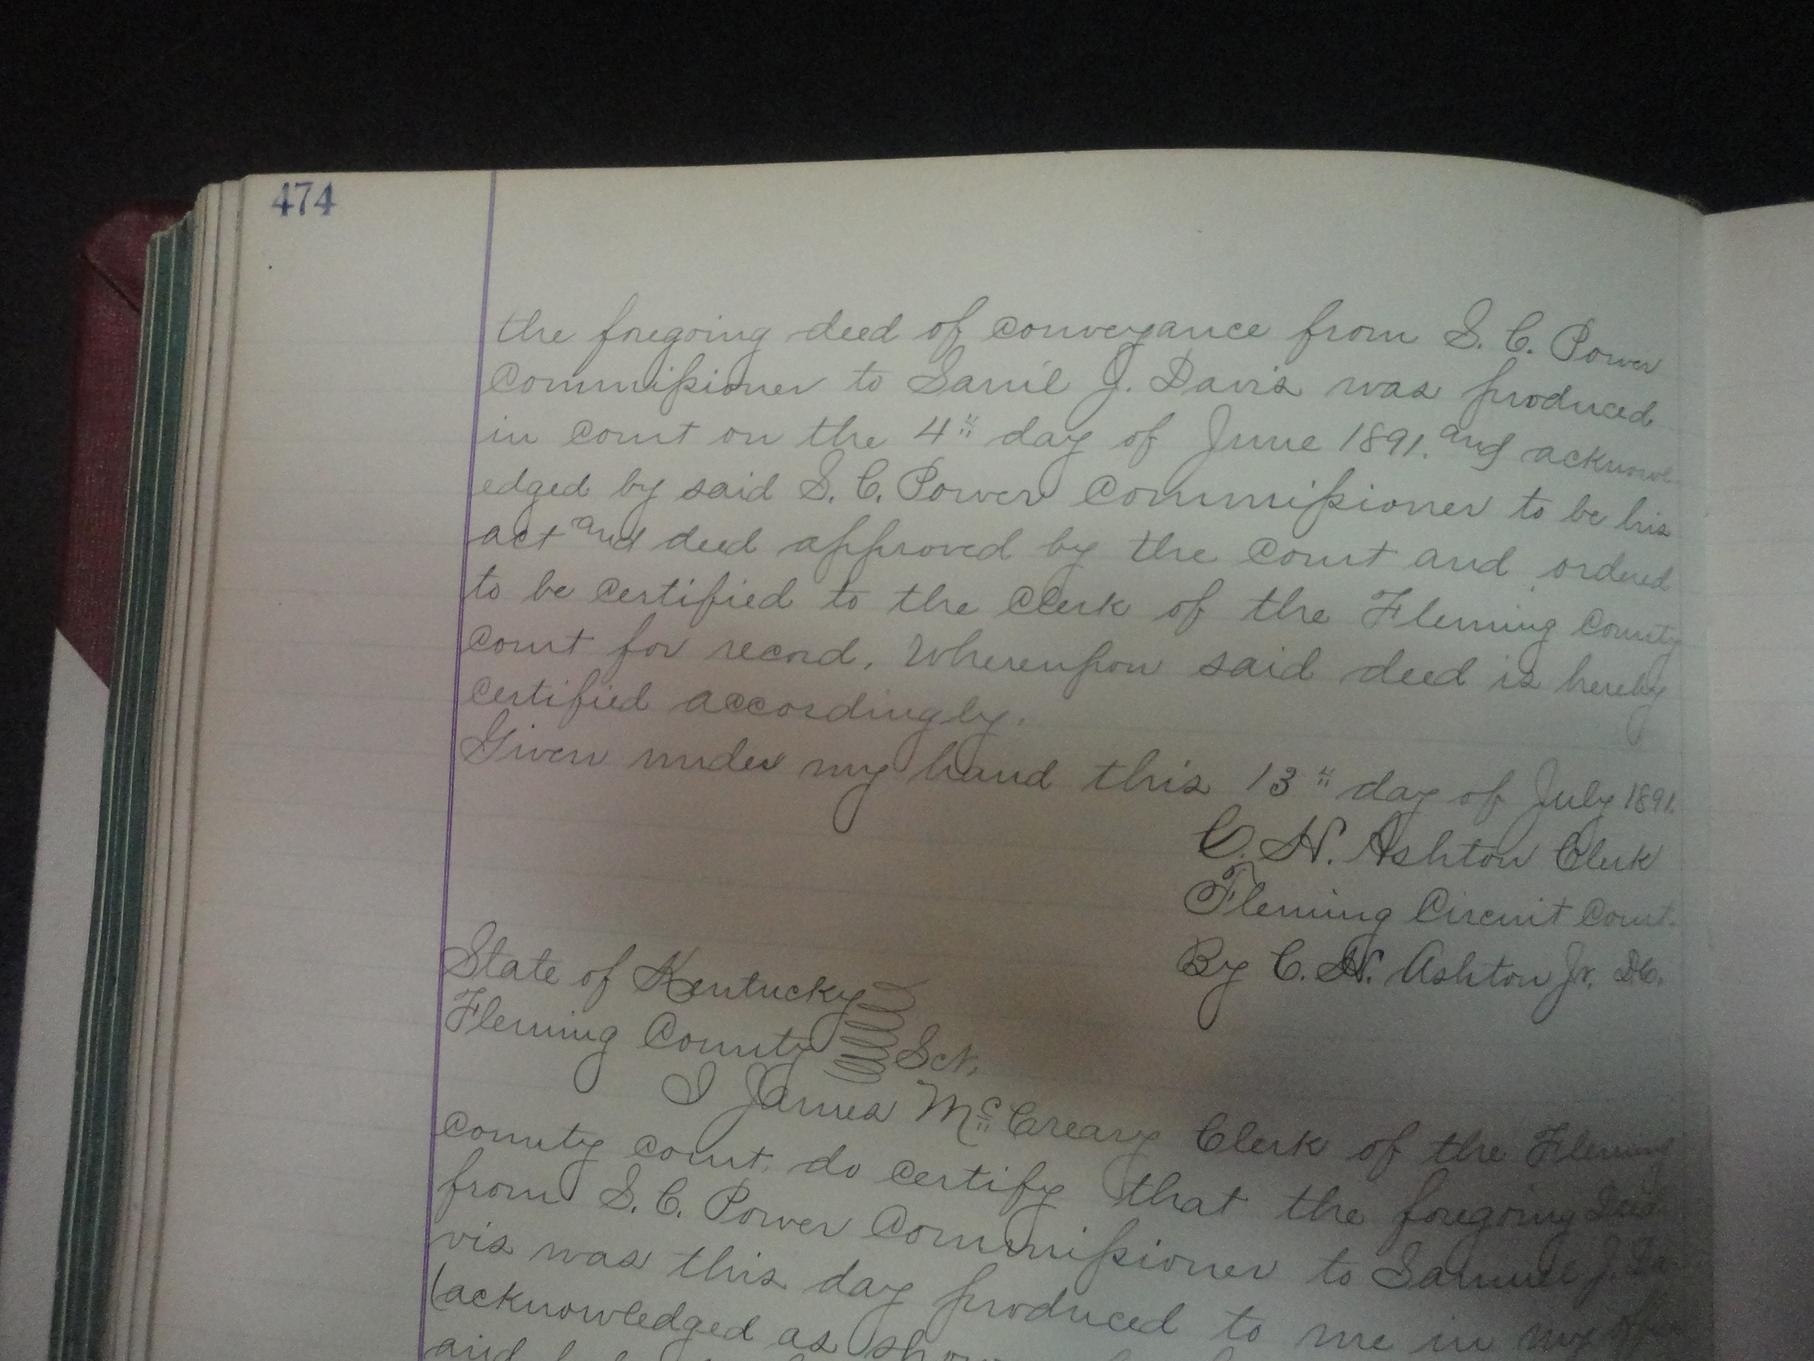 474
the foregoing deed of conveyance from S. C. Power
Commissioner to Saml J. Davis was produced
in court on the 4th day of June 1891. and acknowl-
edged by said S. C. Power Commissioner to be his
act and deed approved by the court and ordered
to be certified to the Clerk of the Fleming County
Court for record. Whereupon said deed is hereby
certified accordingly.
Given under my hand this 13th day of July 1891.
C. N. Ashton Clerk
Fleming Circuit Court.
By C. N. Ashton Jr. D.C.
State of Kentucky
Fleming County Sct.
I James McCreary Clerk of the Fleming
County court, do certify that the foregoing Deed
from S. C. Power Commissioner to Samuel J. Da-
vis was this day produced to me in my
acknowledged as
and